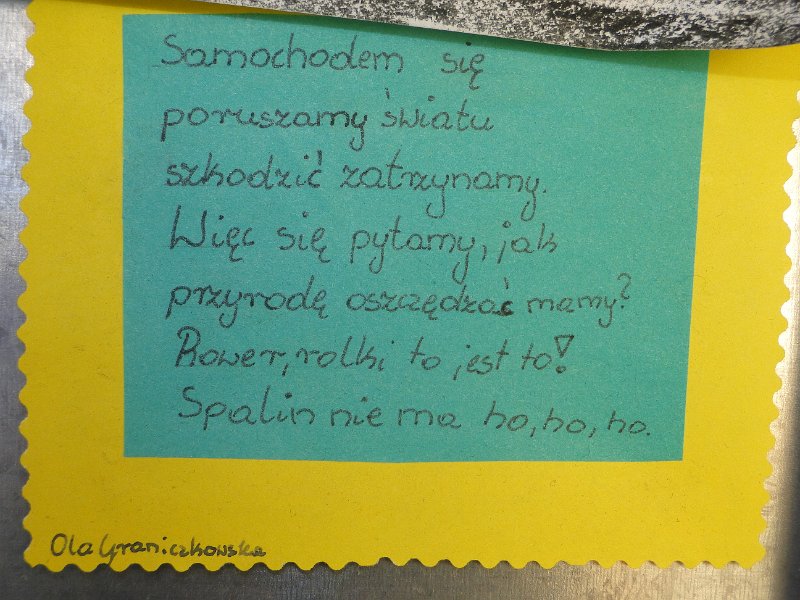 Samochodem się
poruszamy światu
szkodzić zatrzynamy.
Więc się pytamy, jak
przyrodę oszczędzać mamy?
Rower, rolki to jest to!
Spalin nie ma ho, ho, ho.
Ola Graniczkowska